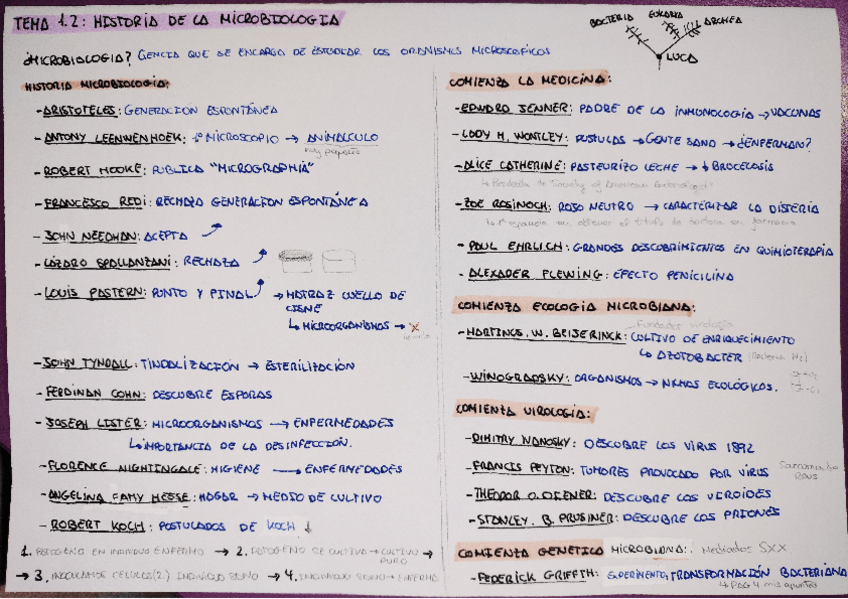 TEMA 1.2: HISTORIA DE LA MICROBIOLOGIA
BACTERIA EUKARIA ARCHEA
LUCA
¿MICROBIOLOGIA? CIENCIA QUE SE ENCARGA DE ESTUDIAR LOS ORGANISMOS MICROSCÓPICOS
HISTORIA MICROBIOLOGIA:
-ARISTOTELES: GENERACION ESPONTÁNEA
-ANTONY LEENWENHOEK: 1º MICROSCOPIO → ANIMALCULO
muy pequeños
-ROBERT HOOKE: PUBLICA "MICROGRAPHIA"
-FRANCESCO REDI: RECHAZA GENERACION ESPONTÁNEA
-JOHN NEEDHAN: ACEPTA
-LÁZARO SPALLANZANI: RECHAZA
-LOUIS PASTERN: PUNTO Y FINAL → MATRAZ CUELLO DE
CISNE
↳ MICROORGANISMOS → X
-JOHN TYNDALL: TINDALIZACIÓN → ESTERILIZACIÓN
-FERDINAN COHN: DESCUBRE ESPORAS
-JOSEPH LISTER: MICROORGANISMOS → ENFERMEDADES
↳IMPORTANCIA DE LA DESINFECCIÓN.
-FLORENCE NIGHTINGALE: HIGIENE → ENFERMEDADES
-ANGELINA FAMY HESSE: HOGAR → MEDIO DE CULTIVO
-ROBERT KOCH: POSTULADOS DE KOCH ↓
1. PATOGENO EN INDIVIDUO ENFERMO → 2. PATOGENO SE CULTIVA → CULTIVO →
PURO
→ 3. INOCULAMOS CELULAS(2.) INDIVIDUO SANO → 4. INDIVIDUO SANO → ENFERMA
COMIENZA LA MEDICINA:
-EDWDRO JENNER: PADRE DE LA INMUNOLOGIA → VACUNAS
-LADY M. WONTLEY: PUSTULAS → GENTE SANA → ¿ENFERMAN?
-ALICE CATHERINE: PASTEURIZO LECHE → ↓ BROCELOSIS
↳ Presidenta de Society of American Bacteriologist
-ZOE ROSINOCH: ROJO NEUTRO → CARACTERIZAR LA DISTERIA
↳ 1ª española en obtener el titulo de doctora en farmacia
-PAUL EHRLICH: GRANDES DESCUBRIMIENTOS EN QUIMIOTERAPIA
-ALEXADER FLEWING: EFECTO PENICILINA
COMIENZA ECOLOGIA MICROBIANA:
Fundador virología
-MARTINUS. W. BEIJERINCK: CULTIVO DE ENRIQUECIMIENTO
↳ AZOTOBACTER (Bacteria N₂)
-WINOGRADSKY: ORGANISMOS → NICHOS ECOLÓGICOS.
COMIENZA VIROLOGIA:
-DIMITRY IVANOSKY: DESCUBRE LOS VIRUS 1892
-FRANCIS PEYTON: TUMORES PROVOCADO POR VIRUS Sarcoma de
Rous
-THEODOR O. DIENER: DESCUBRE LOS VIROIDES
-STANLEY. B. PRUSINER: DESCUBRE LOS PRIONES
COMIENZA GENETICA MICROBIANA: Mediados SXX
-FEDERICK GRIFFTH: EXPERIMENTO, TRANSFORMACIÓN BACTERIANA
↳ PAG 4 mis apuntes